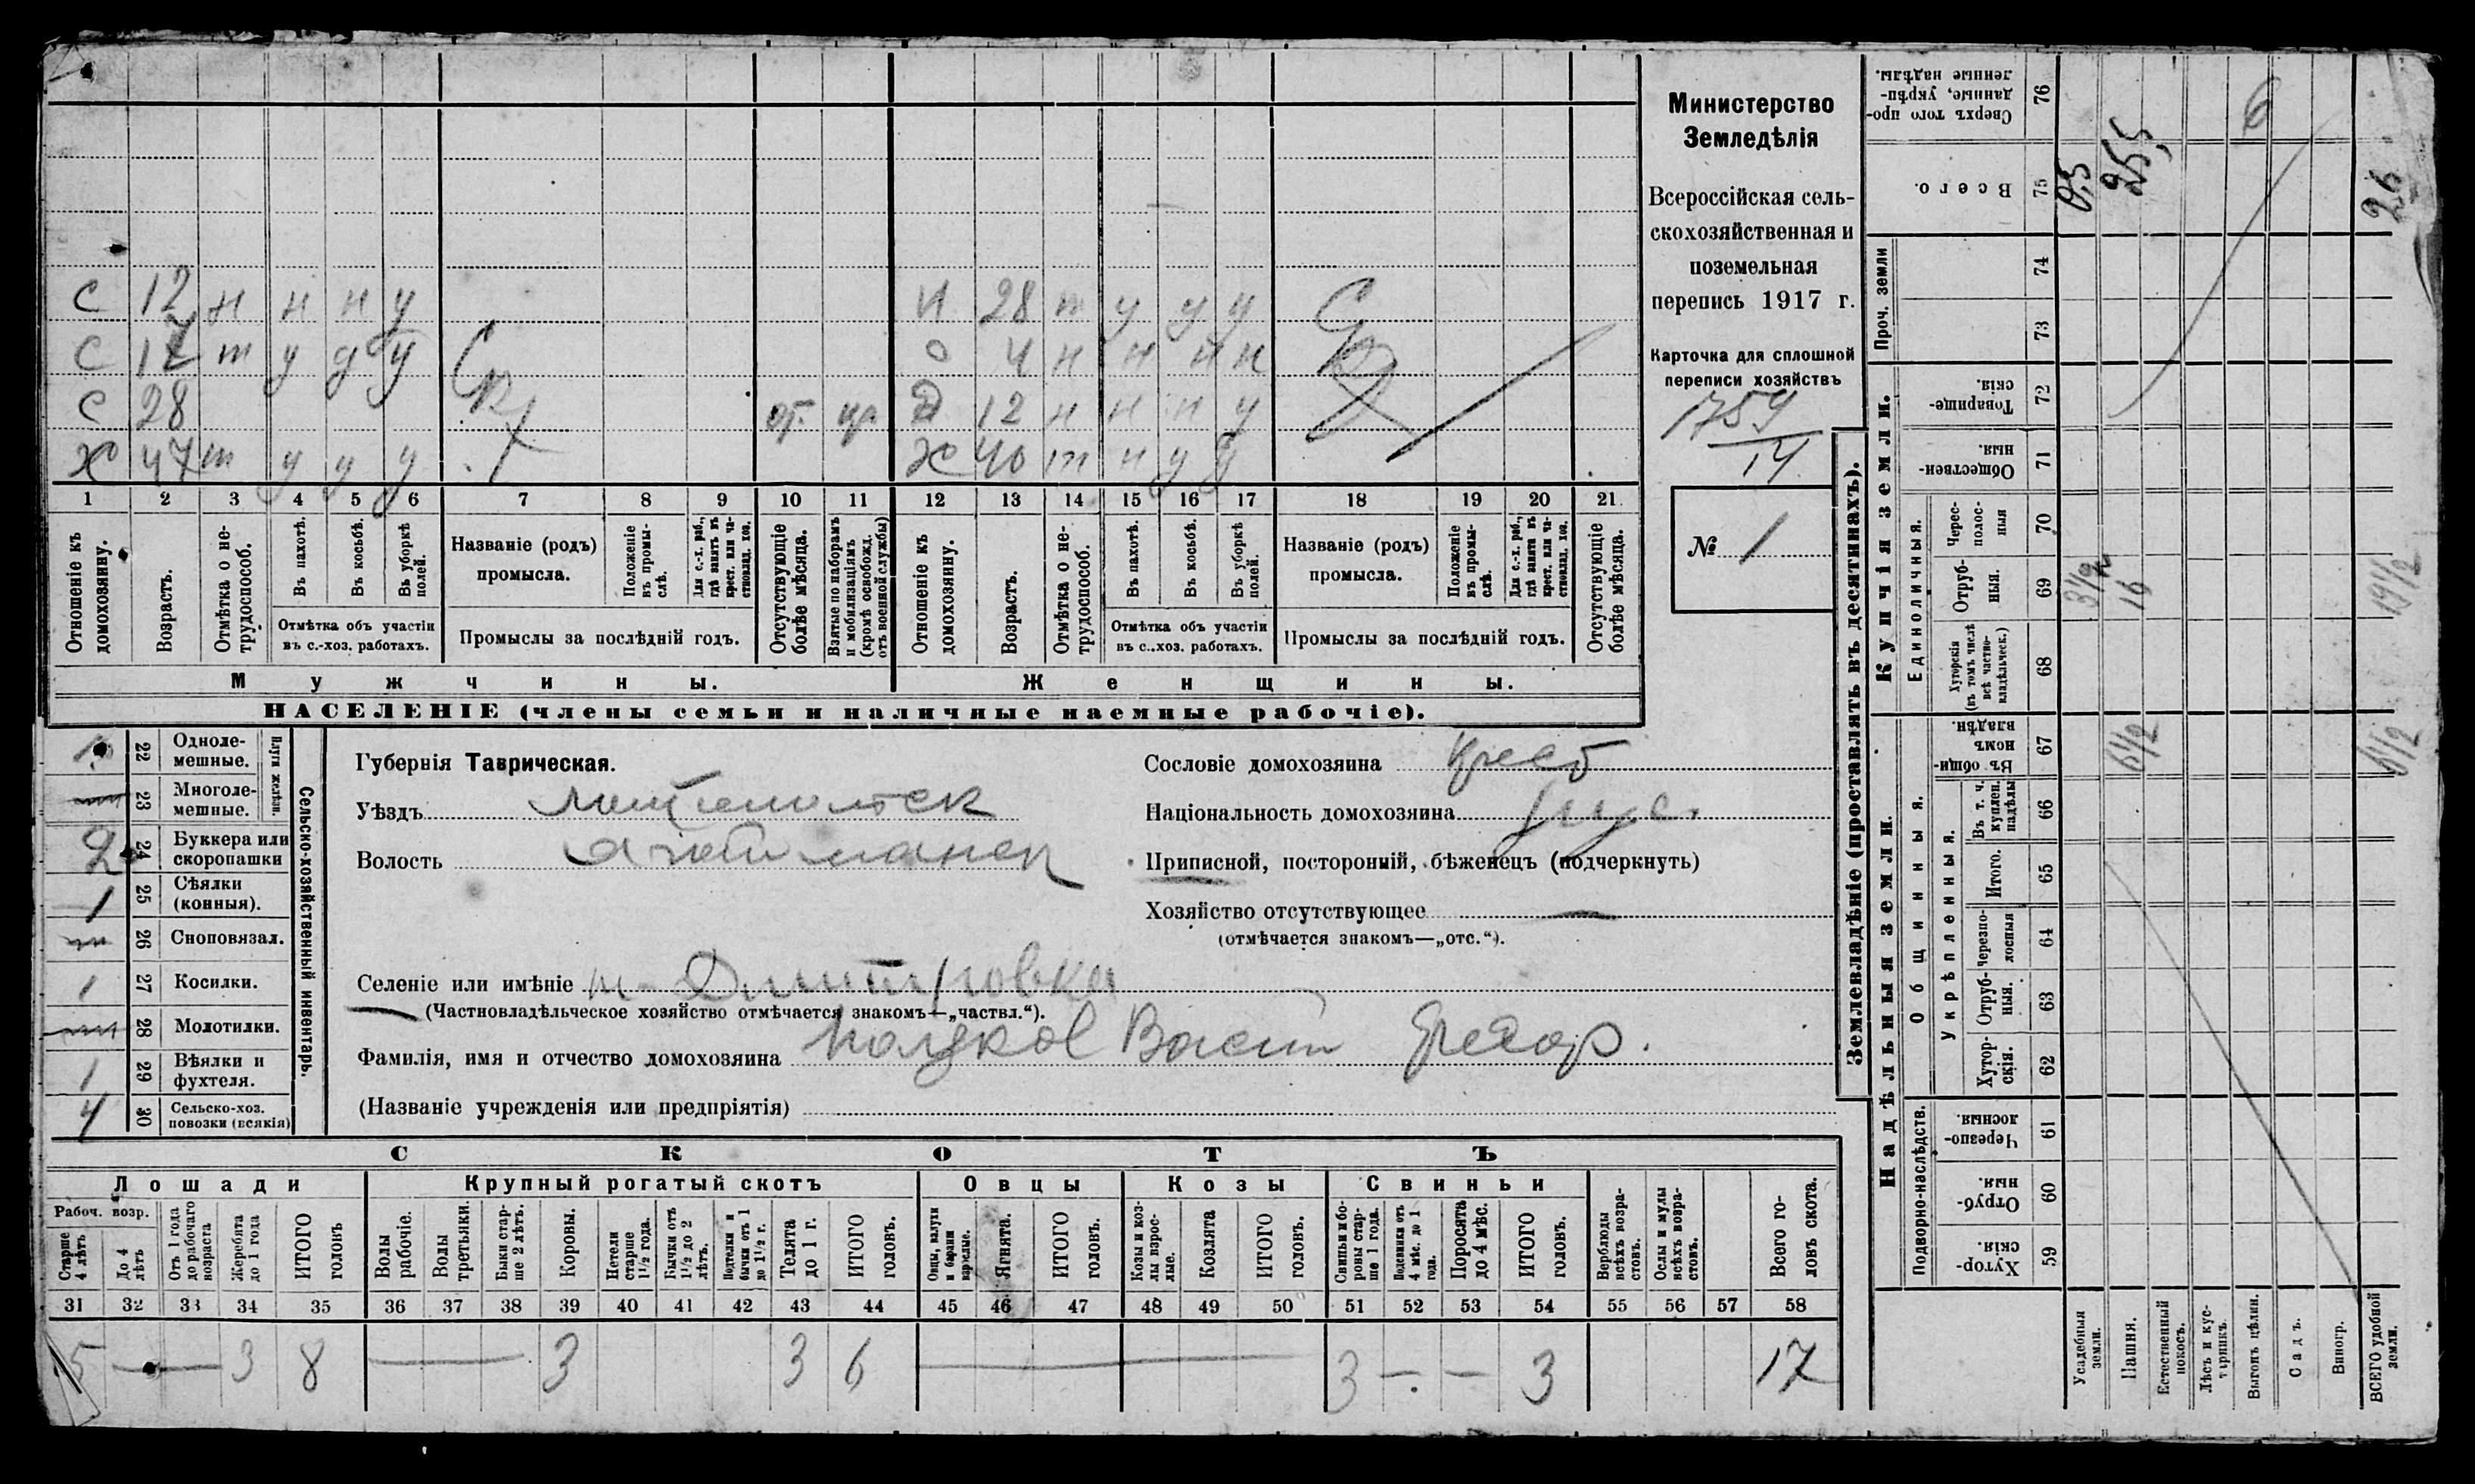 Министерство
Земледѣлія
Всероссійская сель-
скохозяйственная и
поземельная
перепись 1917 г.
Карточка для сплошной
переписи хозяйствъ
1759
14
№ 1
С 12 н н н у
И 28 т у у у
С 17 т у у у
4 н н н н
С 28 от. пр.
Д 12 н н н у
Х 47 т у у у
Ж 40 т н у у
1 2 3 4 5 6 7 8 9 10 11 12 13 14 15 16 17 18 19 20 21
Отношеніе къ домохозяину.
Возрастъ.
Отмѣтка о не-трудоспособ.
Въ пахотѣ.
Въ косьбѣ.
Въ уборкѣ полей.
Отмѣтка объ участіи
въ с.-хоз. работахъ.
Названіе (родъ)
промысла.
Положеніе въ промы-слѣ.
Для с.-х. раб., гдѣ занятъ въ крест. или ча-стновлад. хоз.
Промыслы за послѣдній годъ.
Отсутствующіе болѣе мѣсяца.
Взятые по наборамъ и мобилизаціямъ (кромѣ освобожд. отъ военной службы)
Отношеніе къ домохозяину.
Возрастъ.
Отмѣтка о не-трудоспособ.
Въ пахотѣ.
Въ косьбѣ.
Въ уборкѣ полей.
Отмѣтка объ участіи
въ с.-хоз. работахъ.
Названіе (родъ)
промысла.
Положеніе въ промы-слѣ.
Для с.-х. раб., гдѣ занята въ крест. или ча-стновлад. хоз.
Промыслы за послѣдній годъ.
Отсутствующіе болѣе мѣсяца.
Мужчины.
Женщины.
НАСЕЛЕНІЕ (члены семьи и наличные наемные рабочіе).
22 Одноле-мешные.
Плуги желѣзн.
23 Многоле-мешные.
2 24 Буккера или скоропашки
1 25 Сѣялки (конныя).
26 Сноповязал.
1 27 Косилки.
28 Молотилки.
1 29 Вѣялки и фухтеля.
4 30 Сельско-хоз. повозки (всякія)
Сельско-хозяйственный инвентарь.
Губернія Таврическая.
Уѣздъ
Волость
Селеніе или имѣніе Дмитровка
(Частновладѣльческое хозяйство отмѣчается знакомъ—„частвл.“).
Фамилія, имя и отчество домохозяина
(Названіе учрежденія или предпріятія)
Сословіе домохозяина крест
Національность домохозяина рус.
Приписной, посторонній, бѣженецъ (подчеркнуть)
Хозяйство отсутствующее —
(отмѣчается знакомъ—„отс.“).
СКОТЪ
Лошади
Крупный рогатый скотъ
Овцы
Козы
Свиньи
Рабоч. возр.
Старше 4 лѣтъ
До 4 лѣтъ
Отъ 1 года до рабочаго возраста
Жеребята до 1 года
ИТОГО головъ
Волы рабочіе.
Волы третьяки.
Быки стар-ше 2 лѣтъ.
Коровы.
Нетели старше 1½ года.
Бычки отъ 1½ до 2 лѣтъ.
Подтелки и бычки отъ 1 до 1½ г.
Телята до 1 г.
ИТОГО головъ.
Овцы, валухи и бараны взрослые.
Ягнята.
ИТОГО головъ.
Козы и коз-лы взрос-лые.
Козлята
ИТОГО головъ.
Свиньи и бо-ровы стар-ше 1 года.
Подсвинки отъ 4 мѣс. до 1 года.
Поросята до 4 мѣс.
ИТОГО головъ.
Верблюды всѣхъ возра-стовъ.
Ослы и мулы всѣхъ возра-стовъ.
Всего го-ловъ скота.
31 32 33 34 35 36 37 38 39 40 41 42 43 44 45 46 47 48 49 50 51 52 53 54 55 56 57 58
5 — 3 8 — 3 3 6 — 3 — — 3 17
Землевладѣніе (проставлять въ десятинахъ).
Купчія земли.
Проч. земли
Единоличныя.
Сверхъ того про-данные, укрѣп-ленные надѣлы. 76 6
Всего. 75 0,5 25,5 26
74
73
Товарище-скія. 72
Обществен-ныя. 71
Черес-полос-ныя 70
Отруб-ныя. 69 3½ 16 19½
Хуторскія (въ томъ числѣ всѣ частно-владѣльческ.) 68
Надѣльныя земли.
Общинныя.
Укрѣпленныя.
Въ общин-номъ владѣн. 67 6½ 6½
Въ т. ч. куплен. надѣлы 66
Итого. 65
Черезпо-лосныя 64
Отруб-ныя. 63
Хутор-скія. 62
Подворно-наслѣдств.
Черезпо-лосныя 61
Отруб-ныя. 60
Хутор-скія. 59
Усадебныя земли.
Пашня.
Естественный покосъ.
Лѣсъ и кус-тарникъ.
Выгонъ цѣлин.
Садъ.
Виногр.
ВСЕГО удобной земли.